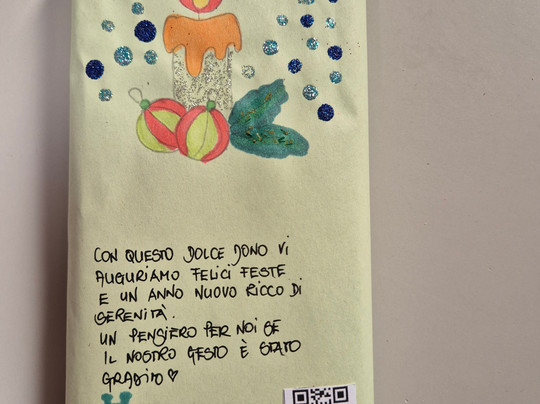 CON QUESTO DOLCE DONO VI
AUGURIAMO FELICI FESTE
E UN ANNO NUOVO RICCO DI
SERENITÀ.
UN PENSIERO PER NOI SE
IL NOSTRO GESTO È STATO
GRADITO ♡